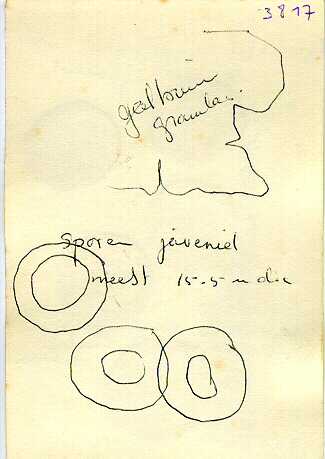 3817
geelbruin
granulae.
Sporen juveniel
meest 15.5 u dia